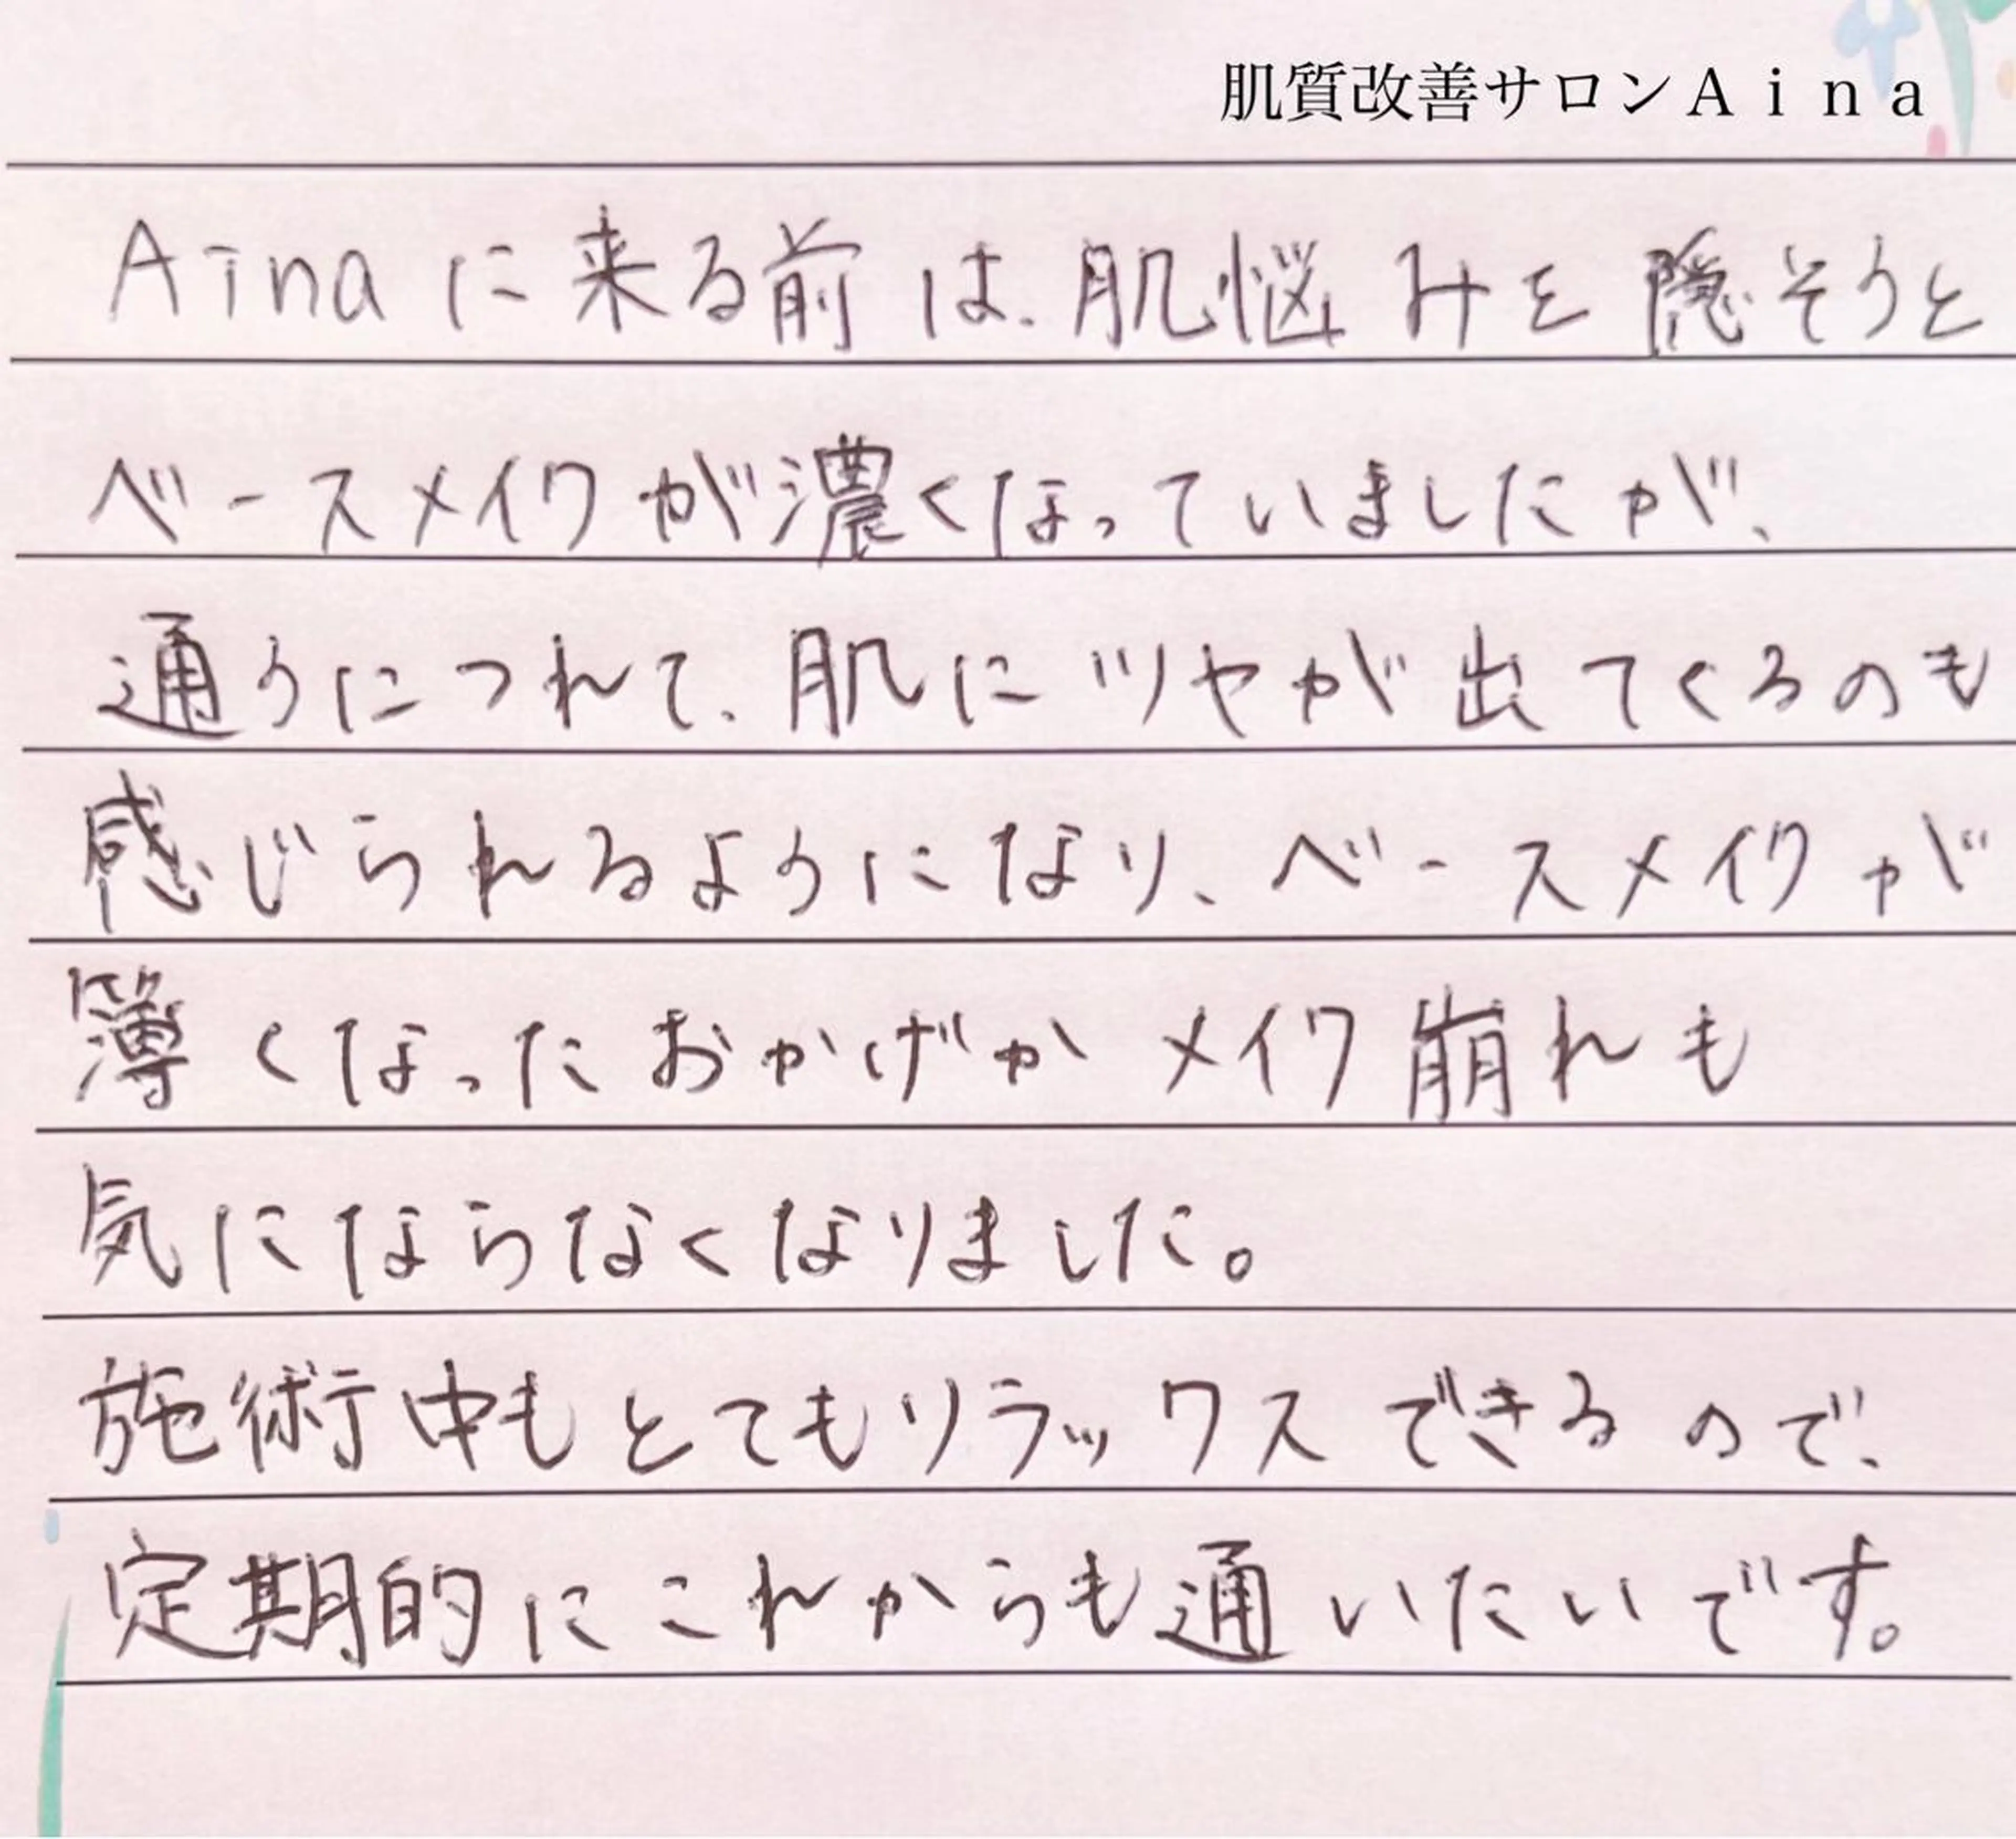 肌質改善サロンAina
Ainaに来る前は、肌悩みを隠そうと
ベースメイクが濃くなっていましたが、
通うにつれて、肌にツヤが出てくるのも
感じられるようになり、ベースメイクが
簿くなったおかげかメイク崩れも
気にならなくなりました。
施術中もとてもリラックスできるので、
定期的にこれからも通いたいです。